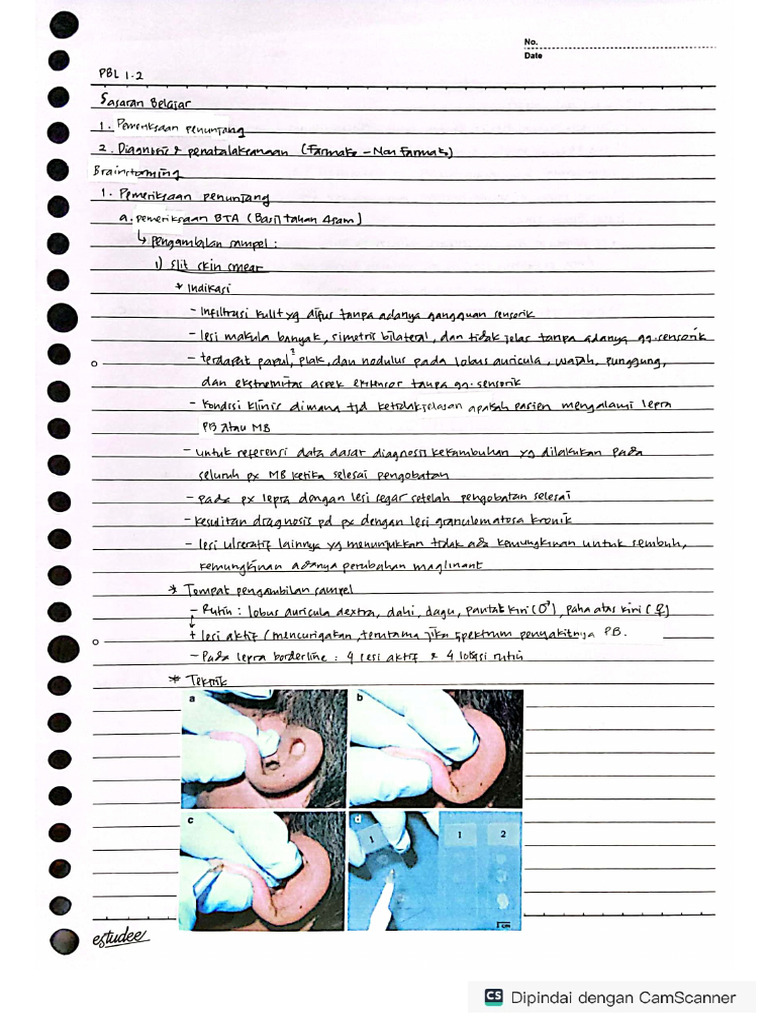 No.
Date
PBL 1.2
Sasaran Belajar
1. Pemeriksaan penunjang
2. Diagnosis & penatalaksanaan (Farmako - Non Farmako)
Brainstorming
1. Pemeriksaan penunjang
a. pemeriksaan BTA (Basil tahan Asam)
↳ Pengambilan sampel :
1) Slit skin smear
* Indikasi
- Infiltrasi kulit yg difus tanpa adanya gangguan sensorik
- lesi makula banyak, simetris bilateral, dan tidak jelas tanpa adanya gg. sensorik
- terdapat papul, plak, dan nodulus pada lobus auricula, wajah, punggung,
dan ekstremitas aspek ekstensor tanpa gg. sensorik
- kondisi klinis dimana tjd ketidakjelasan apakah pasien mengalami lepra
PB atau MB
- untuk referensi data dasar diagnosis kekambuhan yg dilakukan pada
seluruh px MB ketika selesai pengobatan
- pada px lepra dengan lesi segar setelah pengobatan selesai
- kesulitan diagnosis pd px dengan lesi granulomatosa kronik
- lesi ulseratif lainnya yg menunjukkan tidak ada kemungkinan untuk sembuh,
kemungkinan adanya perubahan maglinant
* Tempat pengambilan sampel
- Rutin : lobus auricula dextra, dahi, dagu, pantat kiri (♂), paha atas kiri (♀)
+ lesi aktif / mencurigakan, terutama jika spektrum penyakitnya PB.
- Pada lepra borderline : 4 lesi aktif & 4 lokasi rutin
* Teknik
a
b
c
d
1
1
2
1 cm
estudee
CS Dipindai dengan CamScanner